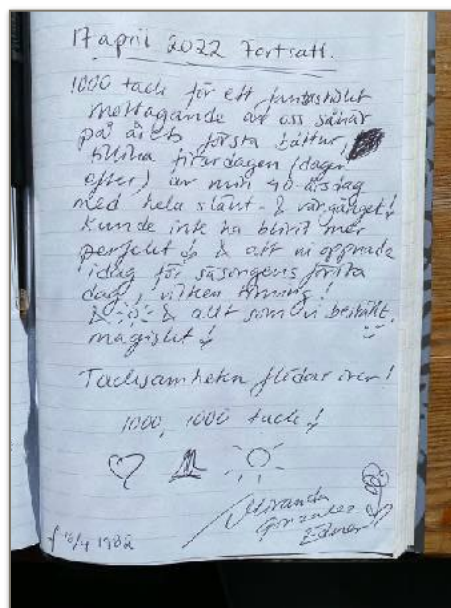 17 april 2022 Fortsätt.
1000 tack för ett fantastiskt
mottagande av oss såhär
på årets första båttur,
firardagen (dagen
efter) av min 40-årsdag
med hela släkt- & vängänget!
Kunde inte ha blivit mer
perfekt! & att ni öppnade
idag för säsongens första
dag, vilken timing!
& & allt som vi beställt.
magiskt!
Tacksamheten flödar över!
1000, 1000 tack!
Miranda
Gonzalez
f 16/4 1982